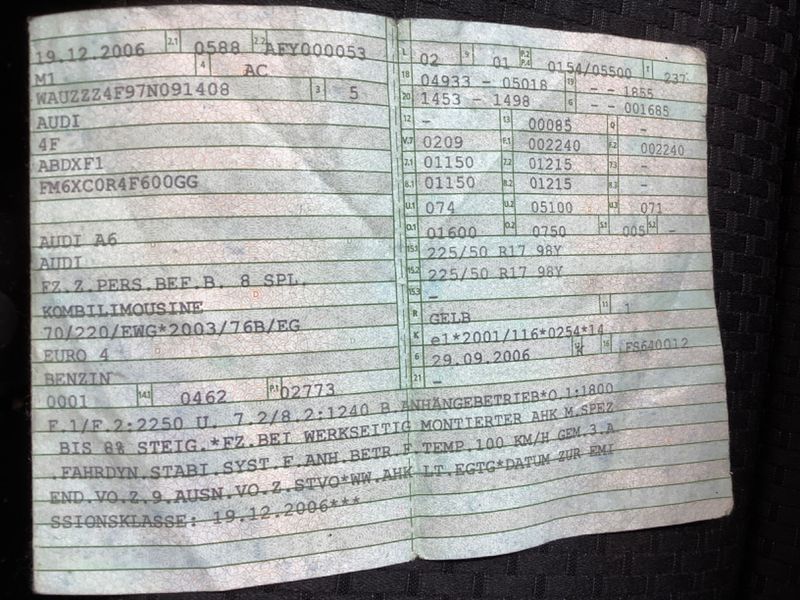 19.12.2006 2.1 0588 2.2 AFY000053
M1 4 AC
WAUZZZ4F97N091408 3 5
AUDI
4F
ABDXF1
FM6XC0R4F600GG
AUDI A6
AUDI
FZ.Z.PERS.BEF.B. 8 SPL.
KOMBILIMOUSINE
70/220/EWG*2003/76B/EG
EURO 4
BENZIN
0001 14.1 0462 P.1 02773
L 02 9 01 P.2 P.4 0154/05500 T 237
18 04933 - 05018 19 - - 1855
20 1453 - 1498 G - - 001685
12 - 13 00085 Q -
V.7 0209 F.1 002240 F.2 002240
7.1 01150 7.2 01215 7.3 -
8.1 01150 8.2 01215 8.3 -
U.1 074 U.2 05100 U.3 071
O.1 01600 O.2 0750 S.1 005 S.2 -
15.1 225/50 R17 98Y
15.2 225/50 R17 98Y
15.3 -
R GELB 11 1
K e1*2001/116*0254*14
6 29.09.2006 17 K 16 FS640012
21 -
F.1/F.2:2250 U. 7.2/8.2:1240 B.ANHÄNGEBETRIEB*O.1:1800
BIS 8% STEIG.*FZ.BEI WERKSEITIG MONTIERTER AHK M.SPEZ
.FAHRDYN.STABI.SYST.F.ANH.BETR.F TEMP.100 KM/H GEM.3.A
END.VO.Z.9.AUSN.VO.Z.STVO*WW.AHK LT.EGTG*DATUM ZUR EMI
SSIONSKLASSE: 19.12.2006***